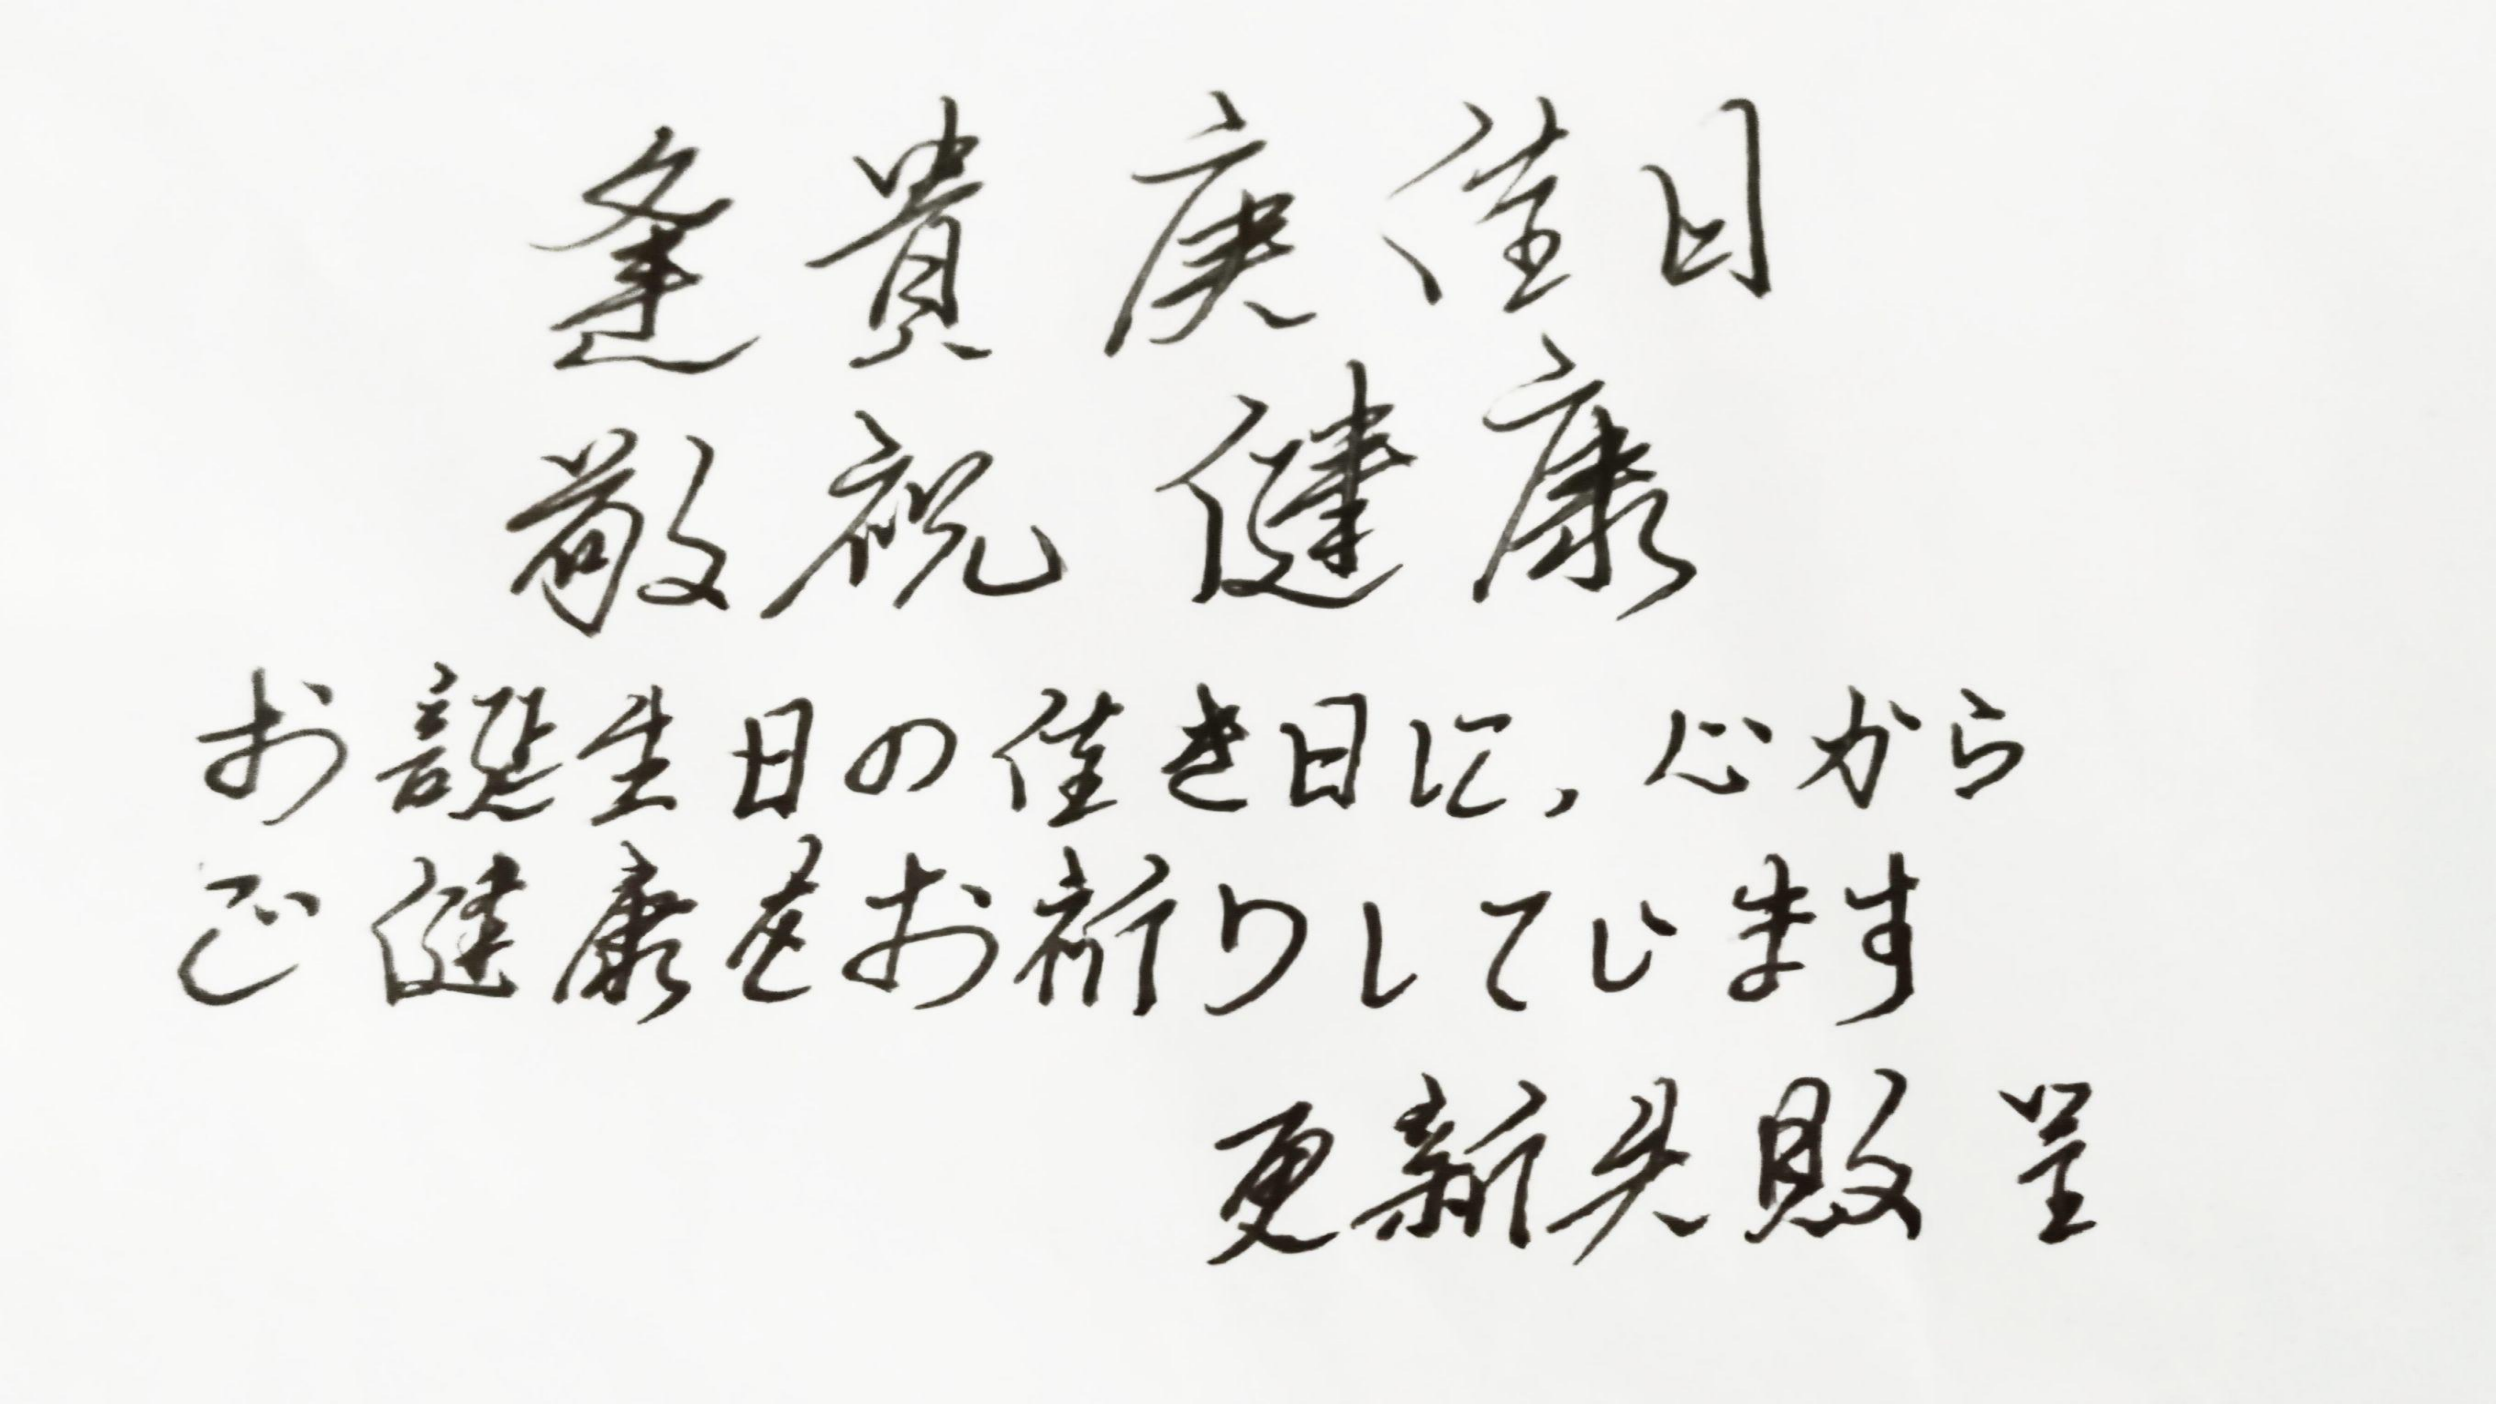 逢貴庚佳日
敬祝健康
お誕生日の佳き日に,心から
ご健康をお祈りしています
更新失敗 呈